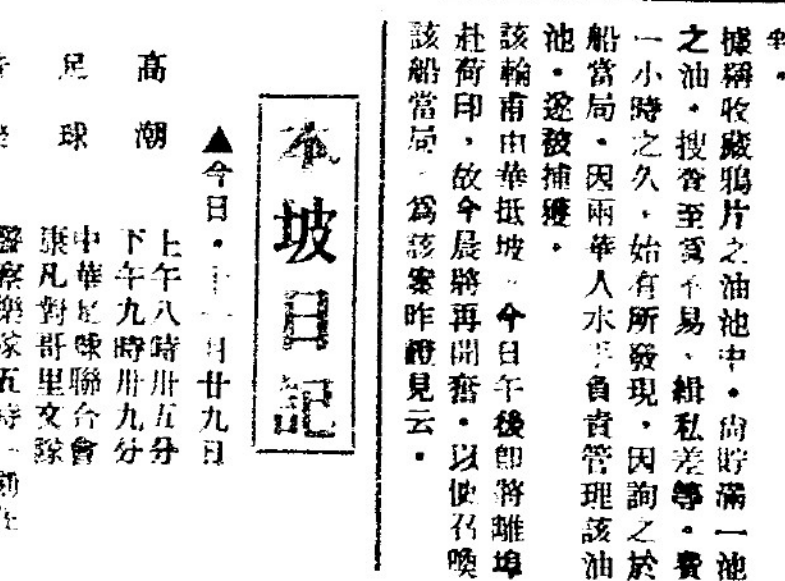 據稱收藏鴉片之油池中。尙貯滿一池
之油。搜查至爲不易、緝私差等。費
一小時之久、始有所發現、因詢之於
船當局。因兩華人水手負責管理該油
池。遂被捕獲。
該輪甫由華抵坡。今日午後卽將離埠
赴荷印，故今晨將再開審。以便召喚
該船當局。爲該案昨證見云。
本坡日記
▲今日。十一月廿九日
高潮
上午八時卅五分
下午九時卅九分
足球
中華足球聯合會
康凡對哥里文隊
警察樂隊五時